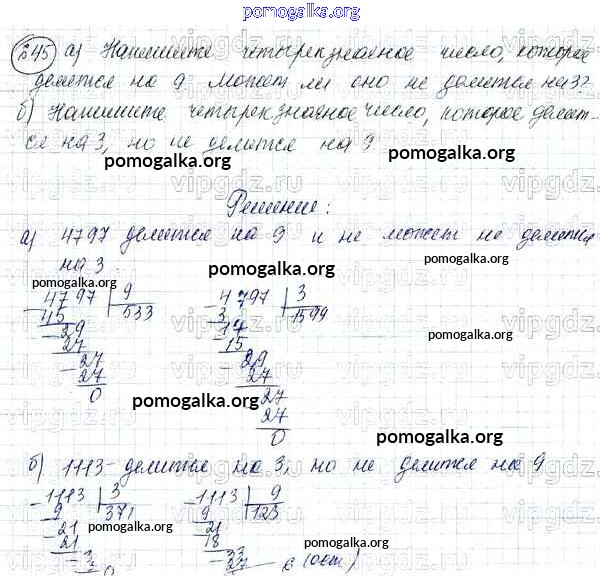 pomogalka.org
245 а) Напишите четырехзначное число, которое
делится на 9. Может ли оно не делиться на 3?
б) Напишите четырехзначное число, которое делит-
ся на 3, но не делится на 9.
pomogalka.org pomogalka.org
Решение:
а) 4797 делится на 9 и не может не делиться
на 3.
pomogalka.org
- 4797 | 9 - 4797 | 3
45 533 3 1599
- 29 - 17
27 15
- 27 - 29
27 27
0 27
27
0
pomogalka.org
pomogalka.org
pomogalka.org
б) 1113 - делится на 3, но не делится на 9
- 1113 | 3 - 1113 | 9
9 371 9 123
- 21 - 21
21 18
- 3 - 33
3 27
0 6 (ост.)
pomogalka.org pomogalka.org
vipgdz.ru